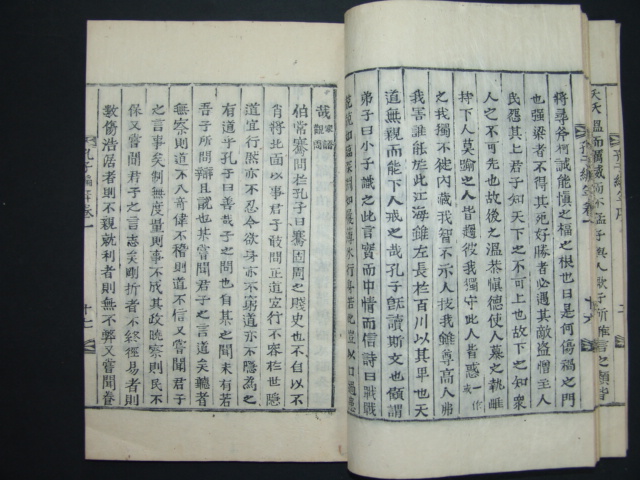 將尋斧柯誠能愼之福之根也曰是何傷禍之門
也強梁者不得其死好勝者必遇其敵盜憎主人
民怨其上君子知天下之不可上也故下之知衆
人之不可先也故後之溫恭愼德使人慕之執雌
持下人莫踰之人皆趨彼我獨守此人皆惑一作或
之我獨不徙內藏我智不示人技我雖尊高人弗
我害誰能於此江海雖左長於百川以其卑也天
道無親而能下人戒之哉孔子旣讀斯文也顧謂
弟子曰小子識之此言實而中情而信詩曰戰戰
兢兢如臨深淵如履薄冰行身若此豈以口過患
哉家語觀周
伯常騫問於孔子曰騫固周之賤史也不自以不
肖將北面以事君子敢問正道宜行不容於世隱
道宜行然亦不忍今欲身亦不窮道亦不隱爲之
有道乎孔子曰善哉子之問也自某之聞未有若
吾子所問辯且說也某嘗聞君子之言道矣聽者
無察則道不入奇偉不稽則道不信又嘗聞君子
之言事矣制無度量則事不成其政曉察則民不
保又嘗聞君子之言志矣剛折者不終徑易者則
數傷浩倨者則不親就利者則無不弊又嘗聞養
孔子編年卷一 十七